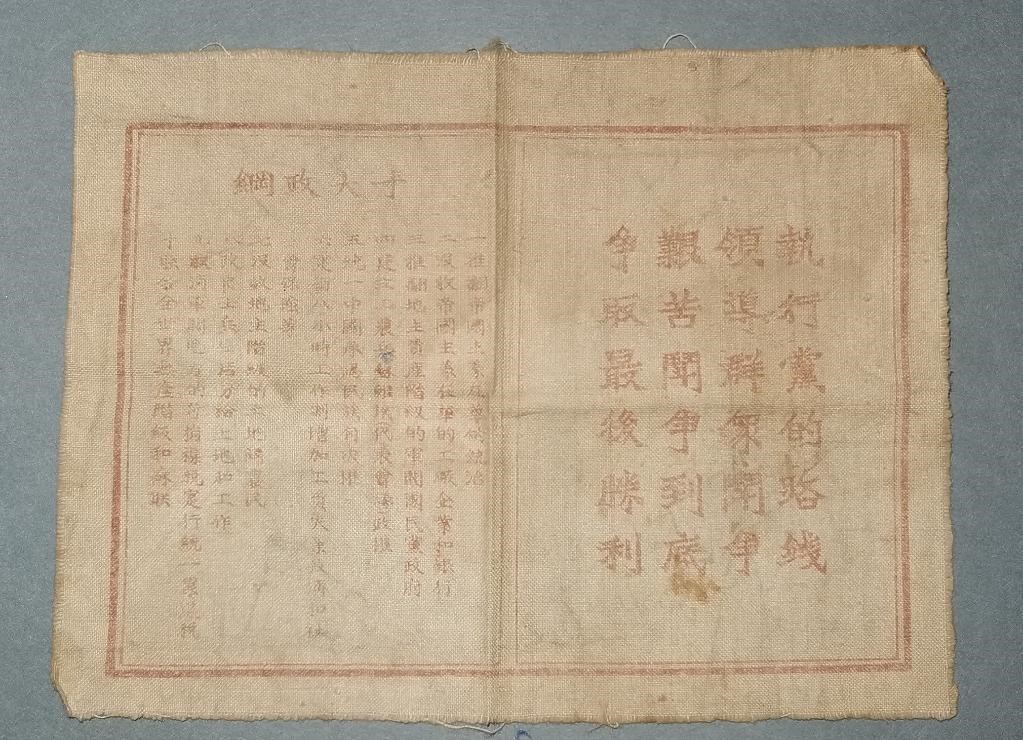 執行黨的路綫
領導群衆鬭争
艱苦鬭争到底
争取最後勝利
十大政綱
一推翻帝國主義在華的統治
二沒收帝國主義在華的工廠企業和銀行
三推翻地主資產階級的軍閥國民黨政府
四建立工農兵蘇維埃代表會議政權
五統一中國承認民族自决權
六定八小時工作制增加工資失業救濟和社
會保險等
七沒收地主階級的土地歸農民
八改良士兵生活分給土地和工作
取消軍閥地方的苛捐雜税實行統一累進税
十聯合全世界無產階級和蘇联